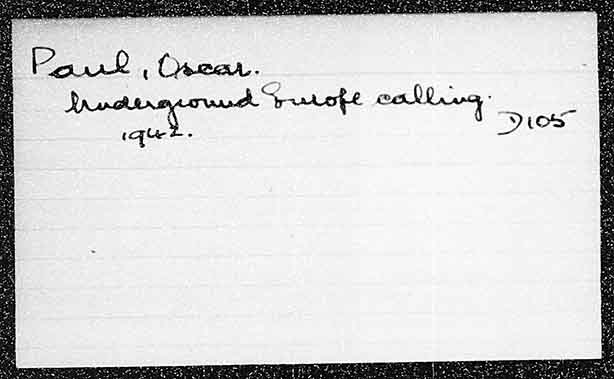 Paul, Oscar.
Underground Europe calling.
1942. D105